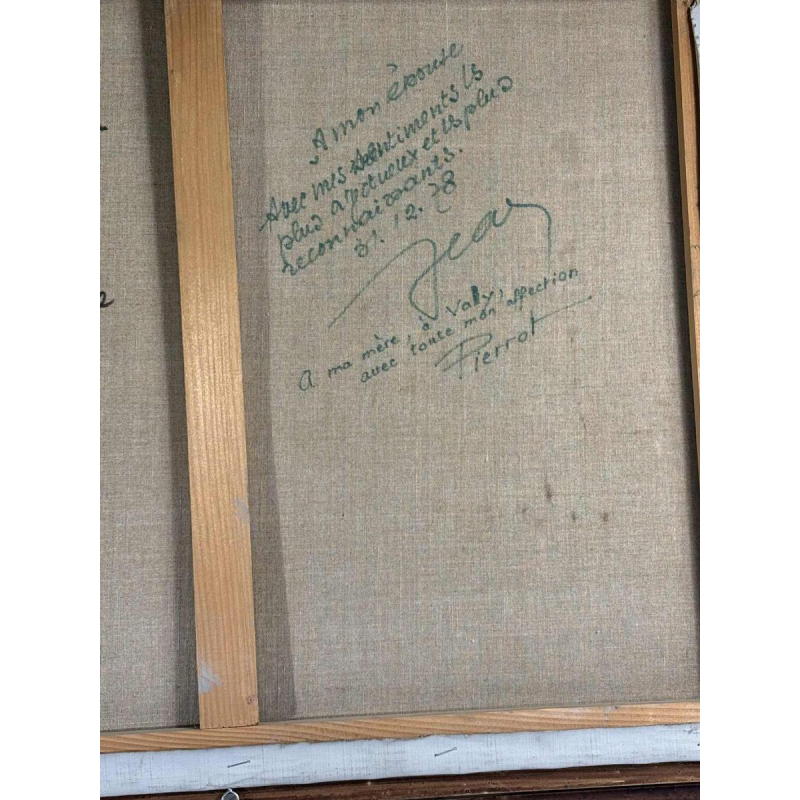 A mon épouse
Avec mes sentiments ls
plus affectueux et ls plus
reconnaissants.
31.12.78
Jean
A ma mère, à Valy,
avec toute mon affection
Pierrot
2